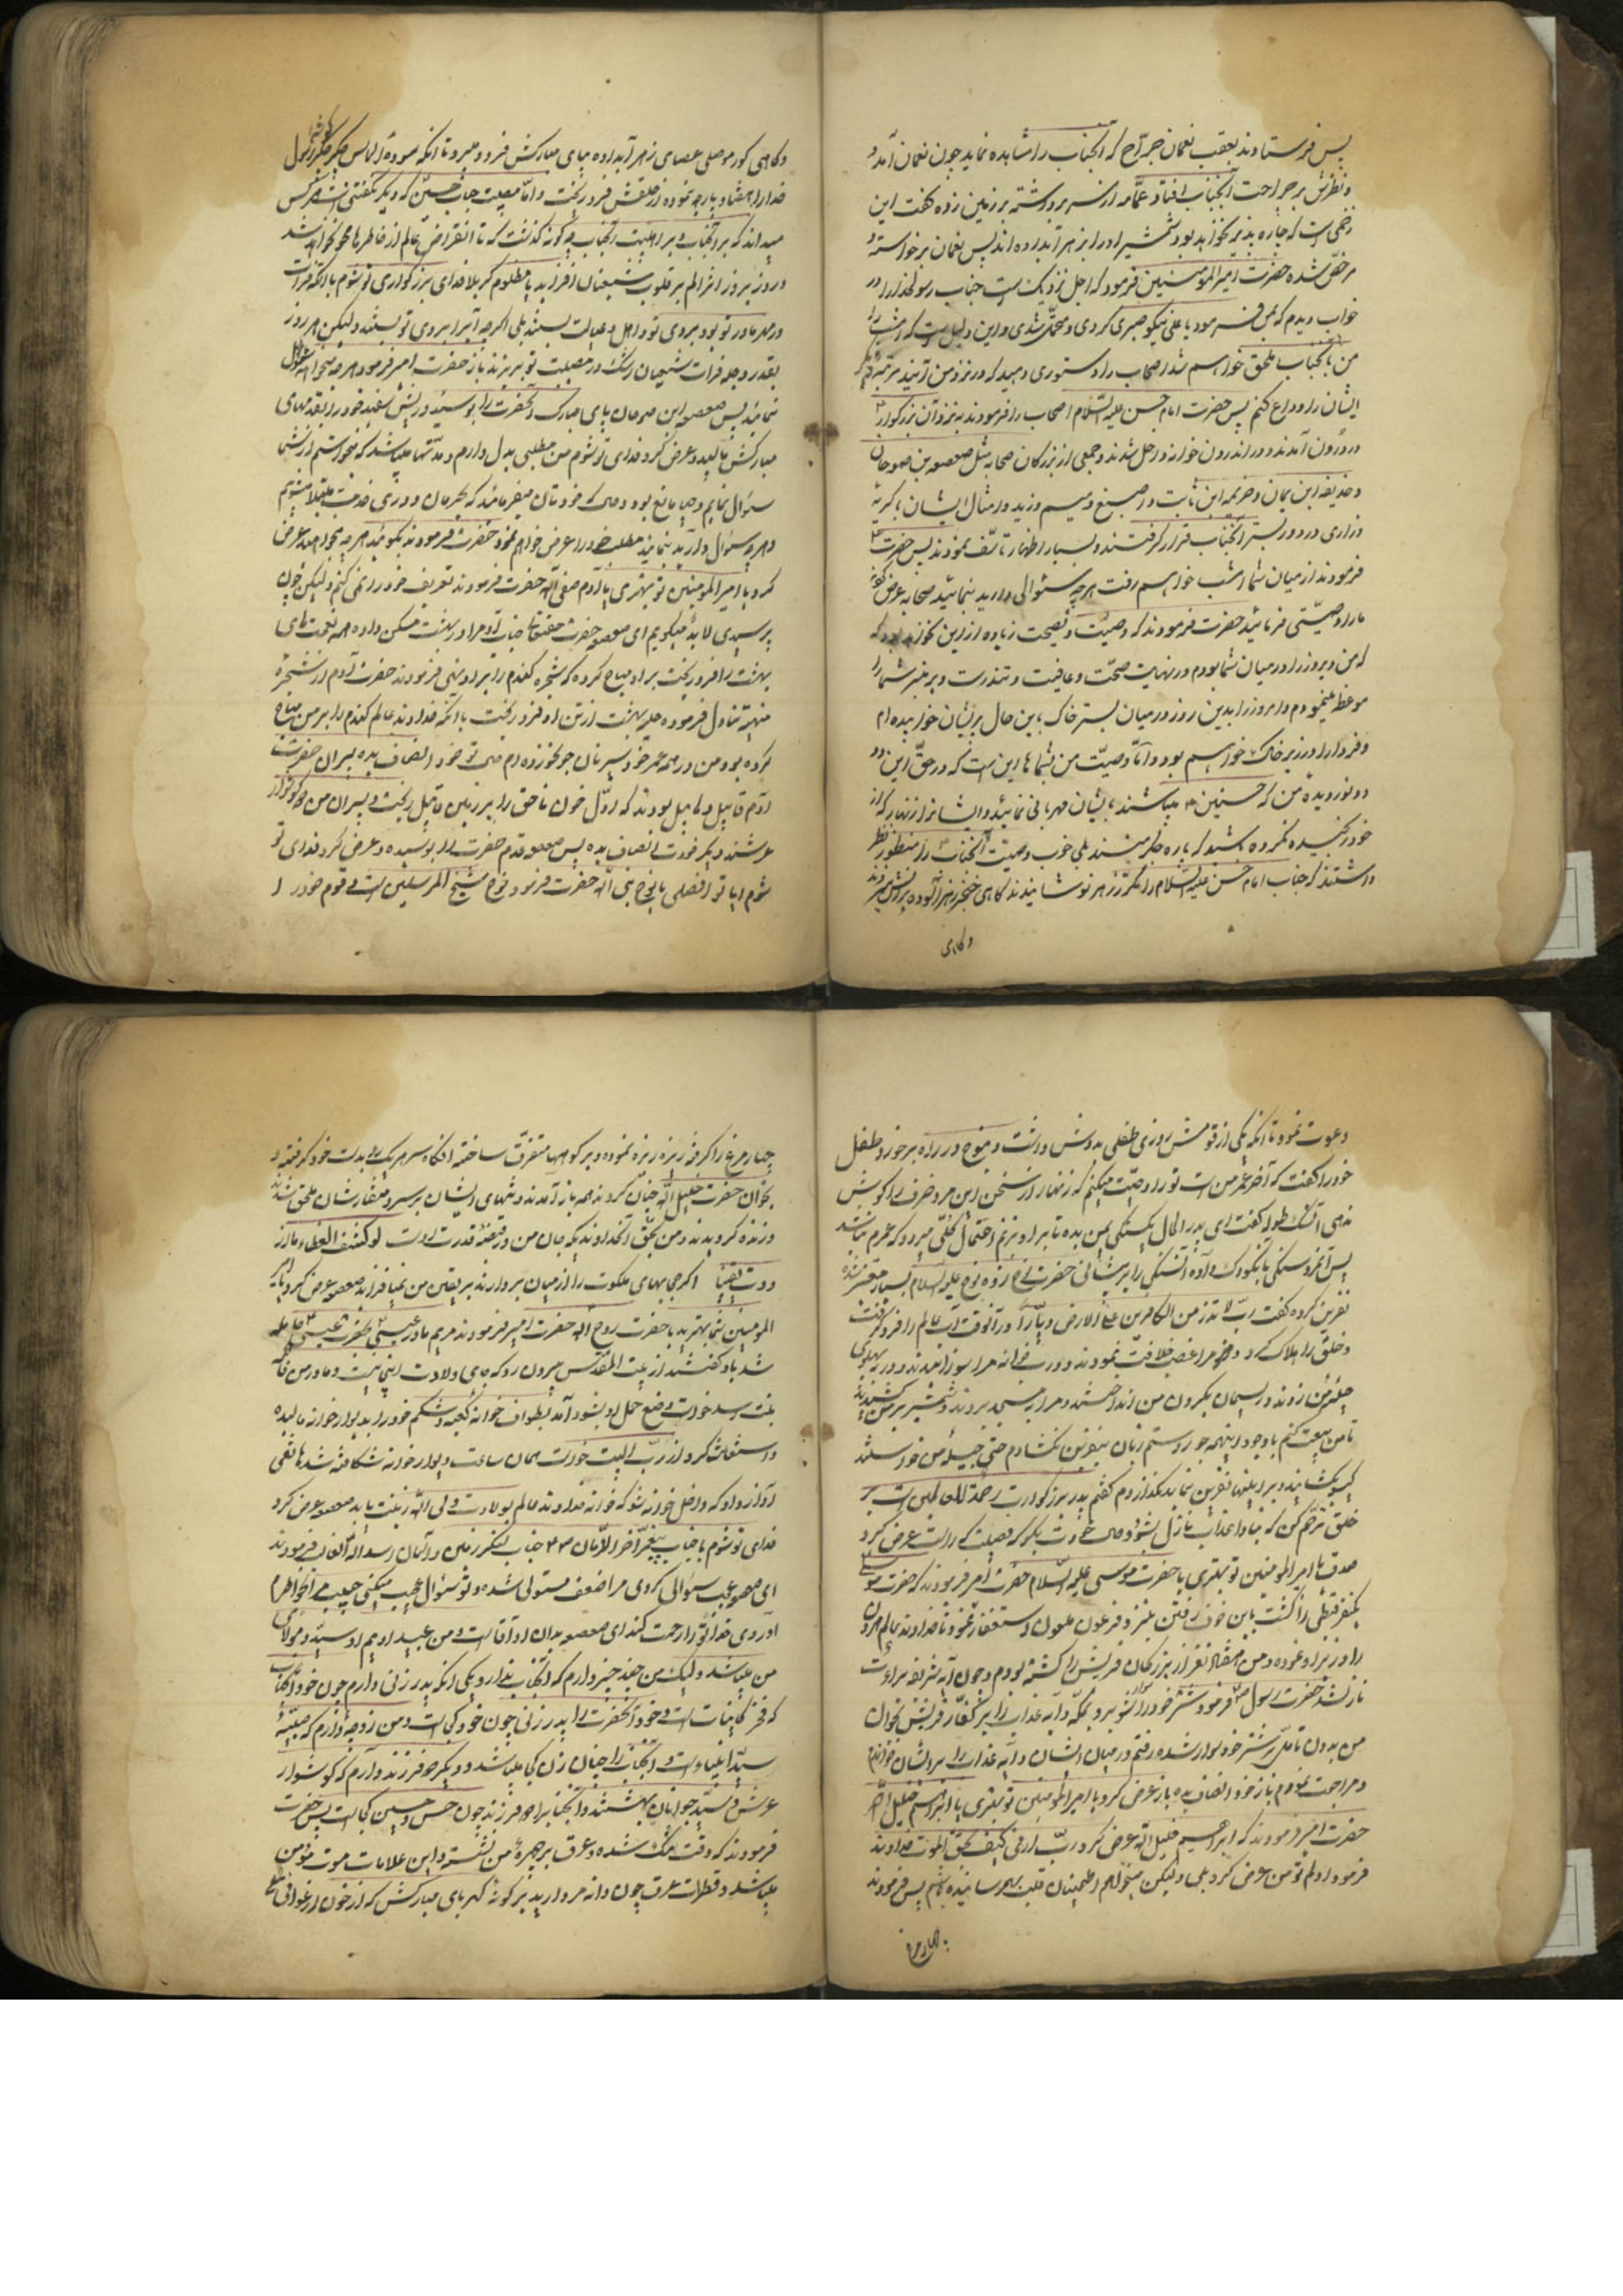 پس فرستادند بعقب نعمان جراح که آنجناب را مشاهده نماید چون نعمان آمد و
و نظرش بر جراحت آنجناب افتاد عمامه از سر برداشته بر زمین زده گفت این
زخمی است که چاره پذیر نخواهد بود شمشیر او را بزهر آبداده اند پس نعمان برخواسته و
مرخص شده حضرت امیرالمومنین فرمود که اجل نزدیک است جناب رسولخدا را در
خواب دیدم که بمن فرمود یا علی نیکو صبری کردی و این دلیل است که امشب را
من بآنجناب ملحق خواهم شد اصحاب را دستوری دهید که در نزد من آیند
ایشان را وداع کنم پس حضرت امام حسن علیه السلام اصحاب را فرمودند به نزد آن بزرگوار
درون آمدند و در اندرون خوانه داخل شدند و جمعی از بزرگان صحابه مثل صعصعه بن صوحان
و حذیفه ابن یمان و خزیمه ابن ثابت و اصبغ و میسم و زید و امثال ایشان با گریه
و زاری در دور بستر آنجناب قرار گرفتند و بسیار اظهار تاسف نمودند پس حضرت
فرمودند از میان شما امشب خواهم رفت هر چه سئوالی دارید بنمائید صحابه عرض کردند
ما را وصیتی فرمائید حضرت فرمودند که وصیت و نصیحت زیاده از این نخواهد بود که
که من دیروز را در میان شما بودم در نهایت صحت و عافیت و تندرست و بر منبر شما را
موعظ مینمودم و امروز را بدین روز در میان بستر خاک باین حال پریشان خوابیده ام
و فردا را در زیر خاک خواهم بود و اما وصیت من بشماها این است که در حق این دو
دو نور دیده من که حسنین میباشند بایشان مهربانی نمائید و ایشانرا زنهار که از
خود رنجیده نکرده باشید که پاره جگر منند بلی خوب وصیت آنجناب را منظور نظر
داشتند که جناب امام حسن علیه السلام را مکرر زهر نوشانیدند گاهی خنجر زهر آلوده برانش میزدند
و گاهی
و گاهی کور موصلی عصای زهر آبداده بپای مبارکش فرو میبرد تا آنکه سوده الماس جگر جگرگوشه رسول
خدا را هفتاد پارچه نموده از حلقش فرو ریخت و اما مصیبت جناب حسین که دیگر نگفتنی است هر کس
میداند که بر آنجناب و بر اهلبیت آنجناب چگونه گذشت که تا انقراض عالم از خاطرها محو نخواهد شد
و روز بروز اثر الم بر قلوب شیعیان افزاید یا مظلوم کربلا فدای بزرگواری تو شوم با آنکه فرات
در مهر مادر تو بود بروی تو و اهل و عیالت بستند بلی اگر چه آب را بروی تو بستند ولیکن امروز
بقدر دجله فرات شیعیان اشک در مصیبت تو بریزند باز حضرت امیر فرمود هر چه میخواهید سئوال
نمائید پس صعصعه ابن صوحان پای مبارک آنحضرت را بوسید و ریش سفید خود را بقدمهای
مبارکش مالید و عرض کرد فدای تو شوم من مطلبی بدل دارم و مدتها میباشد که میخواستم از شما
سئوال نمایم و حیا مانع بود و حال که خودتان میفرمائید که بهجران و دوری خدمت مبتلا میشویم
و هر چه سئوال دارید بنمائید مطلب خود را عرض خواهم نمود حضرت فرمودند بگوئید هر چه میخواهید عرض
کرد یا امیرالمومنین تو بهتری یا آدم صفی الله حضرت فرمودند تعریف خود را نمی کنم ولیکن چون
پرسیدی لابد میگویم ای صعصعه حضرت حقتعالی جناب آدم را در بهشت مسکن داده همه نعمتهای
بهشت را بر او مباح کرده که شجره گندم را بر او نهی فرمودند حضرت آدم از شجره
منهیه تناول فرموده حله بهشت از تن او فرو ریخت با آنکه خداوند عالم گندم را بر من مباح
کرده بود من در همه عمر خود سیر نان جو نخورده ام حال تو خود انصاف بده پسران حضرت
آدم قابیل و هابیل بودند که اول خون ناحق را بر زمین قابیل ریخت و پسران من گوشوار
عرشند دیگر خودت انصاف بده پس صعصعه قدم حضرت را بوسیده و عرض کرد فدای تو
شوم آیا تو افضلی یا نوح نبی الله حضرت فرمود نوح شیخ المرسلین است و قوم خود را
دعوت نمود تا آنکه یکی از قومش روزی طفلی بدوش داشت و نوح در راه برخورد طفل
خود را گفت که آخر عمر من است تو را وصیت میکنم که زنهار از سخن این مرد حرف را گوش
ندهی آن طفل گفت ای پدر الحال یکسنگی بمن بده تا بر او بزنم احتمال کلی میرود که عمرم نباشد
پس آنمرد سنگی بآنکودک داده آنسنگ را بر پیشانی حضرت نوح زده نوح علیه السلام بسیار متغیر شده
نفرین کرده گفت رب لا تذر من الکافرین علی الارض دیارا در آنوقت آب عالم را فرو گرفت
و خلق را هلاک کرد و مرا غصب خلافت نمودند و درب خانه مرا سوزانیدند و در به پهلوی
حلیله من زدند و ریسمان بگردن من انداختند و مرا بمسجد بردند و شمشیر بر من کشیدند
تا من بیعت کنم با وجود اینهمه جور و ستم زبان بنفرین نگشادم حتی حلیله من خواستند
گیسو بگشایند و بر اینها نفرین نماید نگذاردم گفتم پدر بزرگوارت رحمة للعالمین است بر
خلق ترحم کن که مبادا عذاب نازل بشود حال خودت بگو که فضیلت که راست عرض کرد
صدق یا امیرالمومنین تو بهتری یا حضرت موسی علیه السلام حضرت امیر فرمودند که حضرت موسی
یکنفر قبطی را کشت باین خوف رفتن بنزد فرعون ملعون و استغفار نمود تا خداوند عالم هرون
را وزیر او نموده و من هفتاد نفر از بزرگان قریش را کشته بودم و چون آیه شریفه براءت
نازلشد حضرت رسول فرمود شتر خود را سوار شو برو بمکه و آیه عذاب را بر کفار قریش بخوان
من بدون تامل بر شتر خود سوار شده رفتم در میان ایشان و آیه عذاب را بر ایشان خواندم
و مراجعت نمودم باز خود انصاف بده باز عرض کرد یا امیرالمومنین تو بهتری یا ابراهیم خلیل الله
حضرت امیر فرمودند که ابراهیم خلیل الله عرض کرد رب ارنی کیف تحیی الموتی خداوند
فرمود اولم تومن عرض کرد بلی ولیکن میخواهم اطمینان قلب بهم رسانیده باشم پس فرمودند
چهار مرغ
چهار مرغ را گرفته ریزه ریزه نموده و بر کوهها متفرق ساخته آنگاه سر هر یک را بدست خود گرفته و
بخوان حضرت خلیل الله چنان کردند همه باز آمدند و تنهای ایشان بر سر و منقارشان ملحق شدند
و زنده گردیدند و من بحق آنخداوندیکه جان من در قبضه قدرت اوست لو کشف الغطاء ما از
ددت یقینا اگر حجابهای ملکوت را از میان بردارند بر یقین من نمیافزاید صعصعه عرض کرد یا امیر
المومنین شما بهترید یا حضرت روح الله حضرت امیر فرمودند مریم مادر عیسی بحضرت عیسی حامله
شد باو گفتند از بیت المقدس بیرون رو که جای ولادت اینجا نیست و مادر من فاطمه
بنت اسد خواست وضع حمل او بشود آمد بطواف خوانه کعبه و شکم خود را بدیوار خوانه مالیده
و استغاثه کرد از رب البیت خواست همان ساعت دیوار خوانه شکافته شد هاتفی
آواز داد که داخل خوانه شو که خوانه خداوند عالم بولادت ولی الله زینت یابد صعصعه عرض کرد
فدای تو شوم یا جناب پیغمبر آخرالزمان جناب لنگر زمین و آسمان اسدالله الغالب فرمودند
ای صعصعه عجب سئوالی کردی مرا ضعف مستولی شده و تو سئوال عجیب میکنی حبیب مرا بخاطرم
آوردی خدا تو را رحمت کند ای صعصعه بدان او آقا است و من عبید اویم او سید و مولای
من میباشد ولیک من چند چیز دارم که آنجناب ندارد یکی آنکه پدر زنی دارم چون خود آنجناب
که فخر کاینات است و خود آنحضرت را پدر زنی چون خود کجاست و من زوجه دارم که صبیه
سید انبیاء است و آنجناب را چنان زن کجا میباشد و دیگر دو فرزند دارم که گوشوار
عرش و سید جوانان بهشتند و آنجناب را دو فرزند چون حسن و حسین کجا است پس حضرت
فرمودند که وقت تنگ شده و عرق بر چهره من نشسته و این علامات موت مومن
میباشد و قطرات عرق چون دانه مروارید بر گونه کهربای مبارکش که از خون ارغوانی